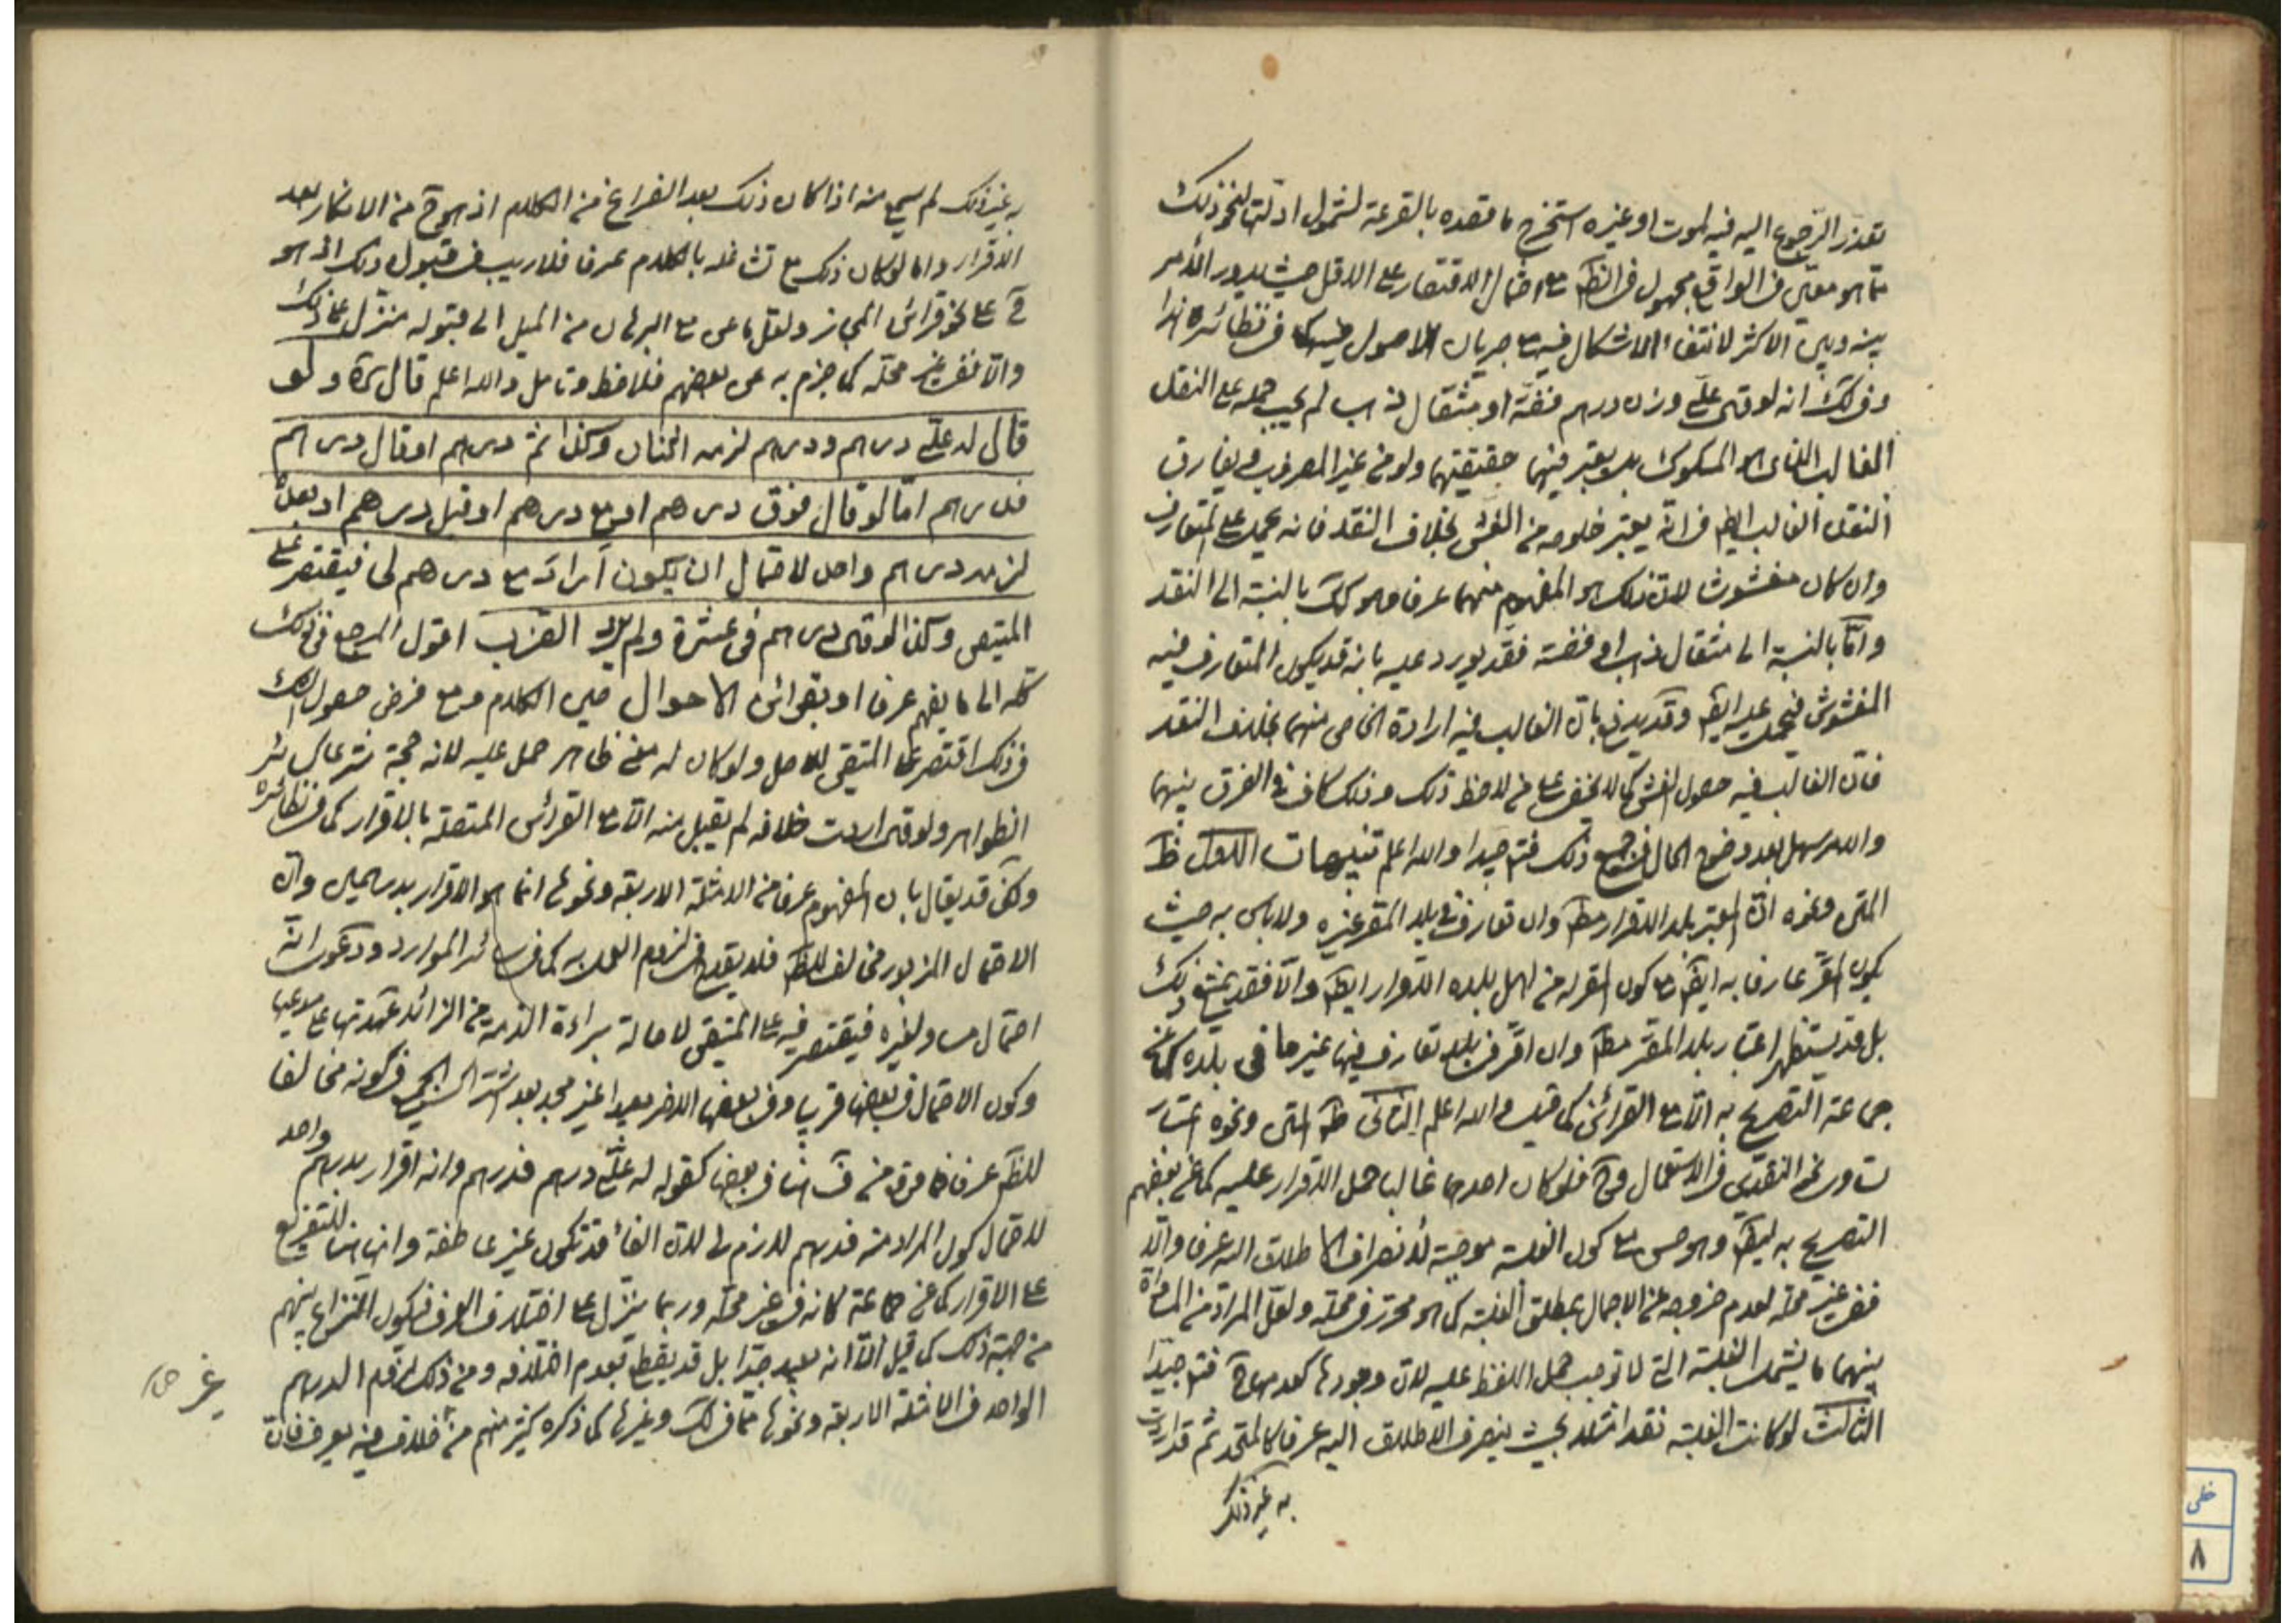 تعذر الرجوع اليه فيه لموت او غيره استخرج ما قصده بالقرعة لشمول ادلتها لنحو ذلك
مما هو معين في الواقع مجهول في الظ مع احتمال الاقتصار على الاقل حيث يدور الامر
بينه وبين الاكثر لانتفاء الاشكال فيه مع جريان الاصول فيه كما في نظائره هذا
وفي لك انه لو قال علي وزن درهم فضة او مثقال ذهب لم يجب حمله على النقد
الغالب الذي هو المسكوك بل يعتبر فيهما حقيقتهما ولو من غير المضروب ويفارق
النقد الغالب ايضا في انه يعتبر خلوصه من الغش بخلاف النقد فانه يحمل على المتعارف
وان كان مغشوشا لان ذلك هو المفهوم منهما عرفا وهو كك بالنسبة الى النقد
واما بالنسبة الى مثقال ذهب او فضة فقد يورد عليه بانه قد يكون المتعارف فيه
المغشوش فيحمل عليه ايضا وقد يدفع بان الغالب فيه ارادة الخاص منهما بخلاف النقد
فان الغالب فيه حصول الغش كما لا يخفى على من لاحظ ذلك وذلك كاف في الفرق بينهما
والامر سهل بعد وضوح الحال في جميع ذلك فتم جيدا والله اعلم تنبيهات الاول ظ
المتن ونحوه ان المعتبر بلد الاقرار مط وان تعارف في بلد المقر غيره ولا باس به حيث
يكون المقر عارفا به ايضا مع كون المقر له من اهل بلده الاقرار ايضا والا فقد يمنع ذلك
بل قد يستظهر اعتبار بلد المقر مط وان اقر في بلد تعارف فيها غير ما في بلده كما عن
جماعة التصريح به الا مع القرائن كما قيل والله اعلم الثاني ظ المتن ونحوه اعتبار
تساوي النقدين في الاستعمال وح فلو كان احدهما غالبا حمل الاقرار عليه كما عن بعضهم
التصريح به ايضا وهو حسن مع كون الغلبة موجبة لانصراف الاطلاق اليه عرفا والا
ففي غير محله لعدم خروجه عن الاجمال بمطلق الغلبة كما هو محرر في محله ولعل المراد من المساواة
بينهما ما يشمل الغلبة التي لا توجب حمل اللفظ عليه لان وجودها كعدمها ح فتم جيدا
الثالث لو كانت الغلبة نقدا مثلا بحيث ينصرف الاطلاق اليه عرفا كالمتحد ثم قال اردت
به غير ذلك
به غير ذلك لم يسمع منه اذا كان ذلك بعد الفراغ من الكلام اذ هو ح من الانكار بعد
الاقرار واما لو كان ذلك مع تشاغله بالكلام عرفا فلا ريب في قبول ذلك اذ هو
ح على نحو قرائن المجاز ولعل ما عن مع البرهان من الميل الى قبوله منزل على ذلك
والا ففي غير محله كما جزم به عن بعضهم فلاحظ وتامل والله اعلم قال ره ولو
قال له علي درهم ودرهم لزمه اثنان وكذا ثم درهم او قال درهم
فدرهم اما لو قال فوق درهم او مع درهم او قبل درهم او بعده
لزمه درهم واحد لاحتمال ان يكون اراد مع درهم لي فيقتصر على
المتيقن وكذا لو قال درهم في عشرة ولم يرد الضرب اقول المرجع في ذلك
كله الى ما يفهم عرفا او بقرائن الاحوال حين الكلام ومع فرض حصول الشك
في ذلك اقتصر على المتيقن للاصل ولو كان له معنى ظاهر حمل عليه لانه حجة شرعا كسائر
الظواهر ولو قال اردت خلافه لم يقبل منه الا مع القرائن المتصلة بالاقرار كما في نظائره
ولكن قد يقال بان المفهوم عرفا من الامثلة الاربعة ونحوها انما هو الاقرار بدرهمين وان
الاحتمال المزبور مخالف للظ فلا يقدح في لزوم العمل به كما في سائر الموارد ودعوى انه
احتمال مساو لغيره فيقتصر فيه على المتيقن لاصالة براءة الذمة من الزائد عهدتها على مدعيها
وكون الاحتمال في بعضها قريبا وفي بعضها الاخر بعيدا غير مجد بعد اشتراك الجميع في كونه مخالفا
للظ عرفا فما فرق من في بعضها كقوله له علي درهم فدرهم وانه اقرار بدرهم واحد
لاحتمال كون المراد منه فدرهم لازم لي لان الفاء قد تكون غير عاطفة وانها هنا للتفريع
على الاقرار كما عن جماعة كانه في غير محله وربما ينزل على اختلاف العرف فيكون النزاع بينهم
من جهة ذلك كما قيل الا انه بعيد جدا بل قد يقطع بعدم اختلافه ومن ذلك لزوم الدرهم
الواحد في الامثلة الاربعة ونحوها مما في لك وغيرها كما ذكره كثير منهم من خلاف فيه يعرف فان
خطي
٨